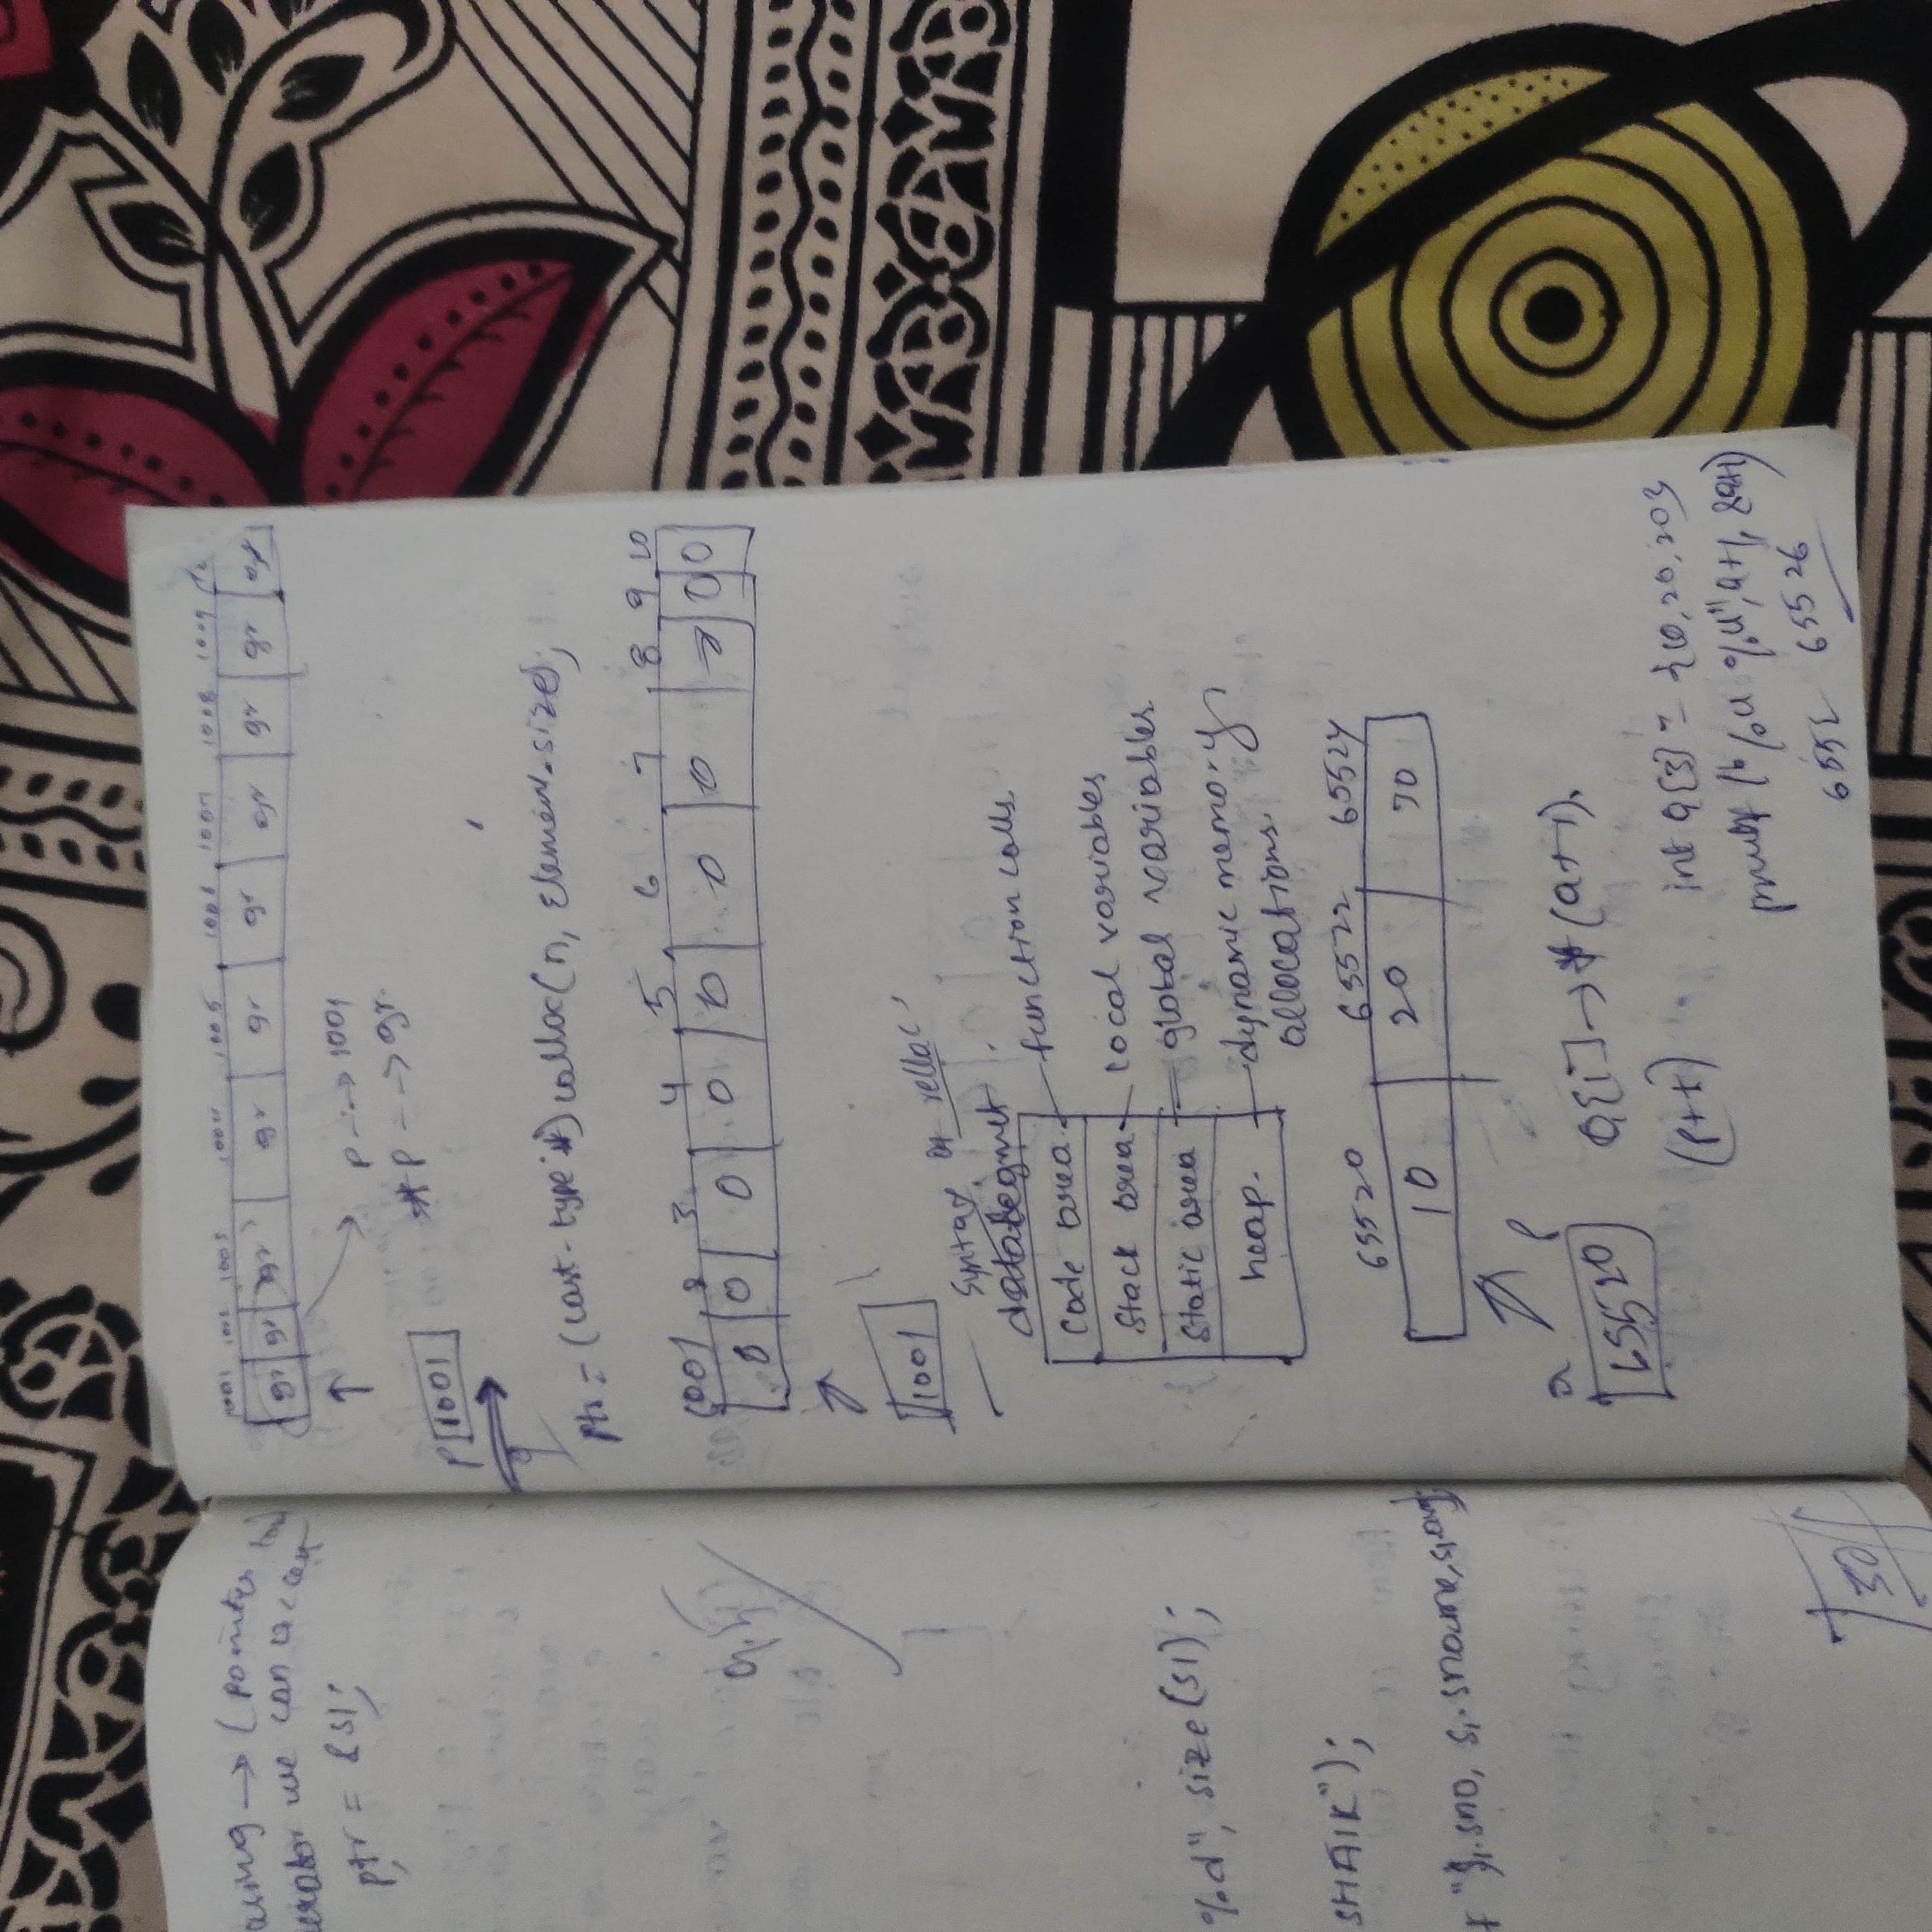 (pointer
we can
ptr = &s1;
%d", size(s1);
SHAIK");
s1.sno, s1.sname, s1.avg
30
1001 1002 1003 1004 1005 1006 1007 1008 1009
gr gr gr gr gr gr gr gr gr gr
p --> 1001
*p --> gr.
p 1001
ptr = (cast-type *) calloc(n, Element.size);
1001 2 3 4 5 6 7 8 9 10
0 0 0 0 0 0 0 0 0 0
1001
Syntax of relloc
data segmet
Code area - function calls.
Stack area - local variables
Static area - global variables
heap. - dynamic memory
allocations.
65520 65522 65524
10 20 30
a p
65520
a[i] -> *(a+i).
(p++)
int a[3] = {10,20,20}
printf ("%u %u", a+1, &a+1)
6552 65526